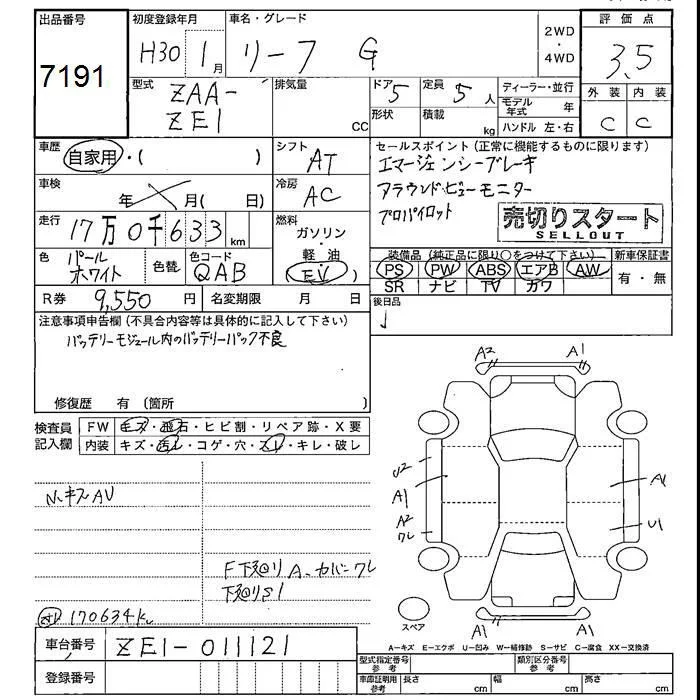 出品番号
7191
初度登録年月
H30 1月
車名・グレード
リーフ G
2WD
・
4WD
評価点
3.5
外装 内装
C C
型式
ZAA-
ZE1
排気量
CC
ドア 5
形状
定員 5人
積載 kg
ディーラー・並行
モデル年式 年
ハンドル 左・右
車歴
自家用・( )
シフト
AT
セールスポイント(正常に機能するものに限ります)
エマージェンシーブレーキ
アラウンドビューモニター
プロパイロット
売切りスタート
SELLOUT
車検
年 月( 日)
冷房
AC
走行
17万0千633km
燃料
ガソリン
・
軽油
(EV)
色
パール
ホワイト
色替
色コード
QAB
装備品(純正品に限り○をつけて下さい)
PS PW ABS エアB AW
SR ナビ TV カワ
新車保証書
有・無
R券 9,550円
名変期限 月 日
後日品
注意事項申告欄(不具合内容等は具体的に記入して下さい)
バッテリーモジュール内のバッテリーパック不良
修復歴 有(箇所 )
検査員
記入欄
FW キズ・飛石・ヒビ割・リペア跡・X要
内装 キズ・汚レ・コゲ・穴・スレ・キレ・破レ
キズAU
F下廻りA、カバーワレ
下廻りS1
170634k
A2 A1
U2
A1
A2
ワレ
A1
U1
A1 A1
スペア
A=キズ E=エクボ U=凹み W=補修跡 S=サビ C=腐食 XX=交換済
車台番号 ZE1-011121
登録番号
型式指定番号
参考
類別区分番号
参考
車庫証明用
参考
長さ cm 幅 cm 高さ cm